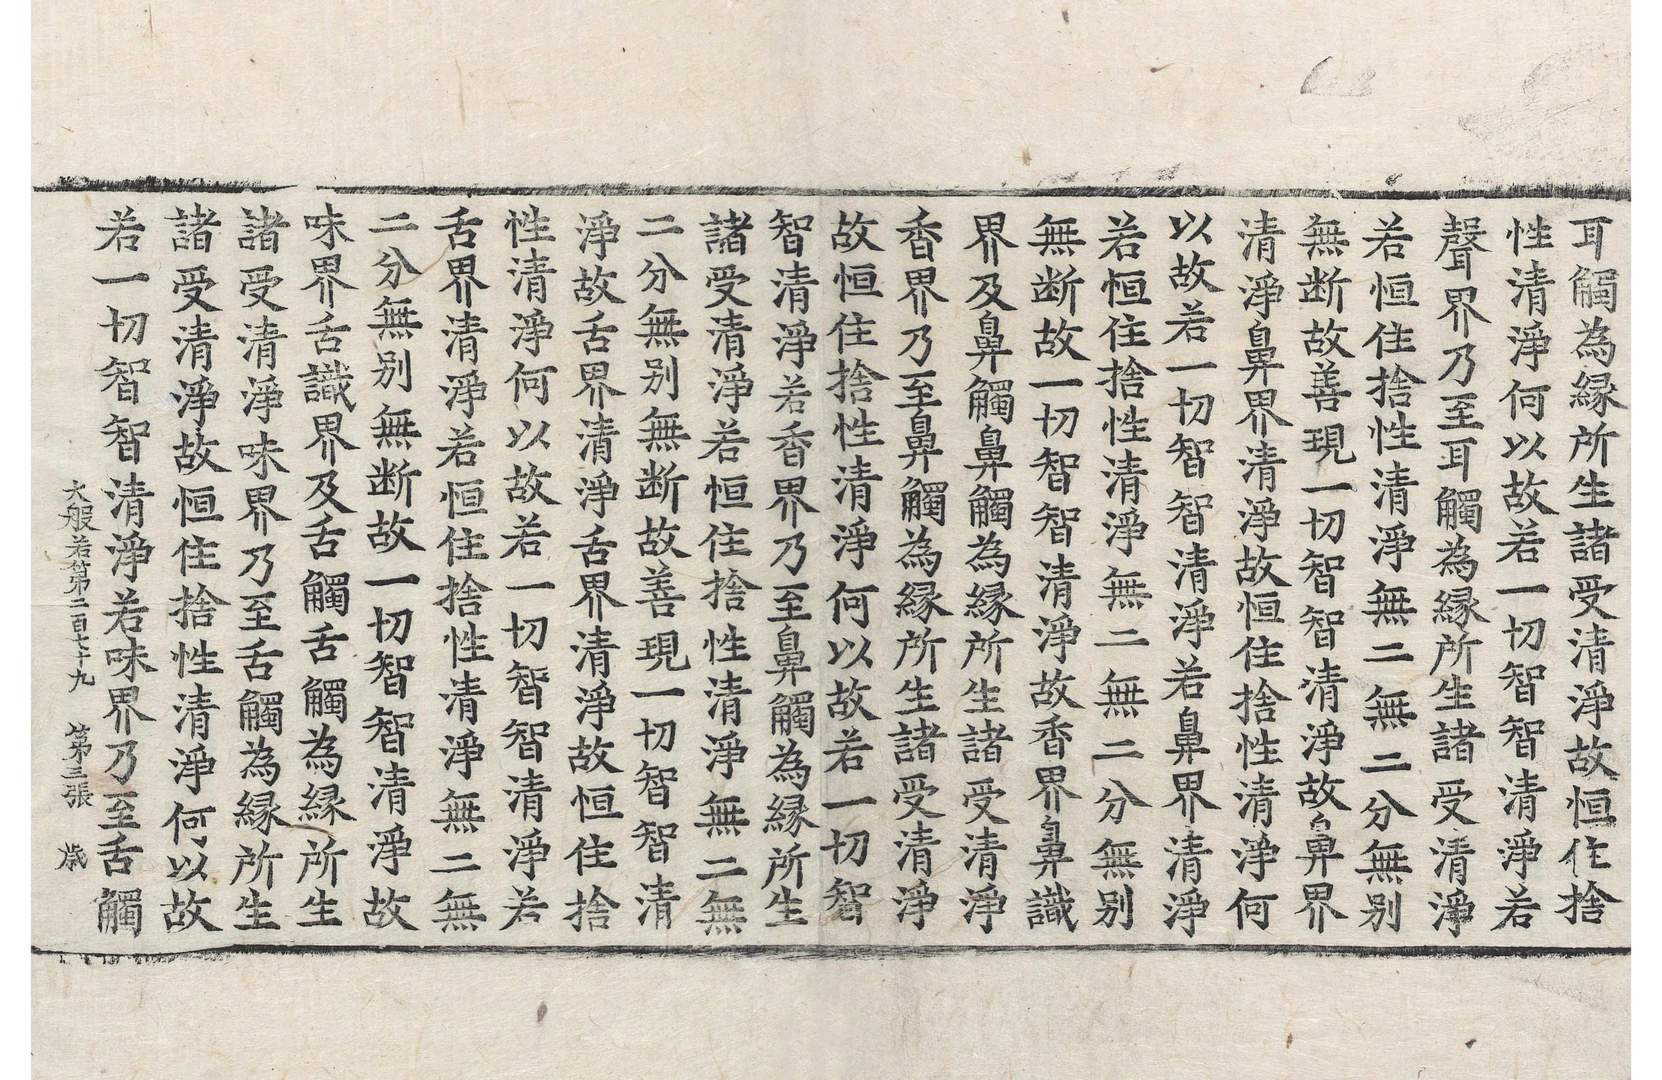 耳觸為縁所生諸受清淨故恒住捨
性清淨何以故若一切智智清淨若
聲界乃至耳觸為縁所生諸受清淨
若恒住捨性清淨無二無二分無别
無断故善現一切智智清淨故鼻界
清淨鼻界清淨故恒住捨性清淨何
以故若一切智智清淨若鼻界清淨
若恒住捨性清淨無二無二分無别
無断故一切智智清淨故香界鼻識
界及鼻觸鼻觸為縁所生諸受清淨
香界乃至鼻觸為縁所生諸受清淨
故恒住捨性清淨何以故若一切智
智清淨若香界乃至鼻觸為縁所生
諸受清淨若恒住捨性清淨無二無
二分無别無断故善現一切智智清
淨故舌界清淨舌界清淨故恒住捨
性清淨何以故若一切智智清淨若
舌界清淨若恒住捨性清淨無二無
二分無别無断故一切智智清淨故
味界舌識界及舌觸舌觸為縁所生
諸受清淨味界乃至舌觸為縁所生
諸受清淨故恒住捨性清淨何以故
若一切智智清淨若味界乃至舌觸
大般若第二百七十九 第三張 歳